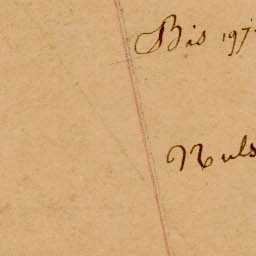 Bis 197
Nuls